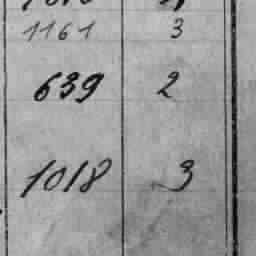 1161 3
639 2
1018 3